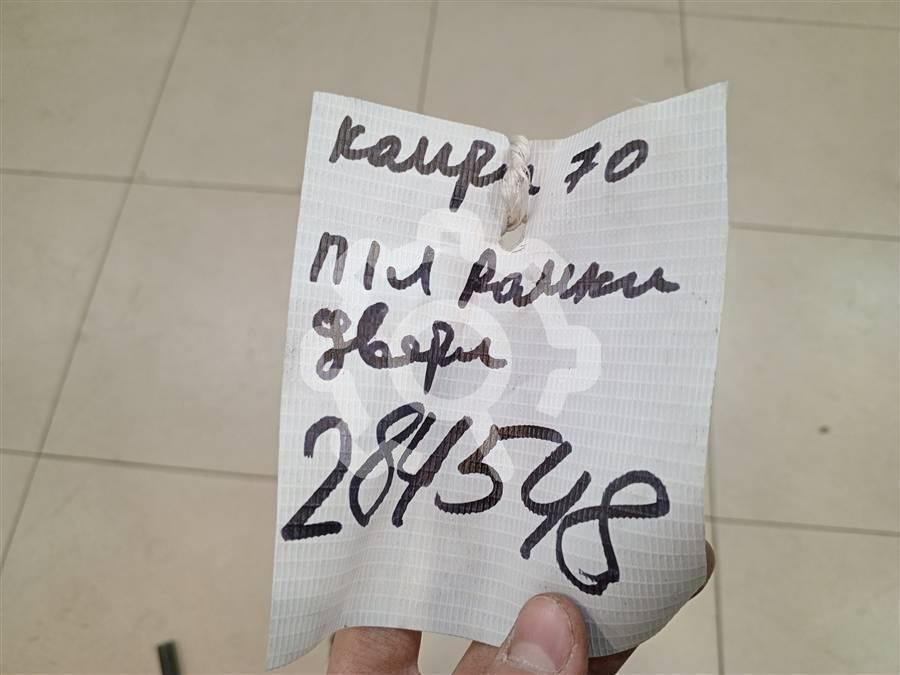 Камри 70
П/Л рамки
двери
284548